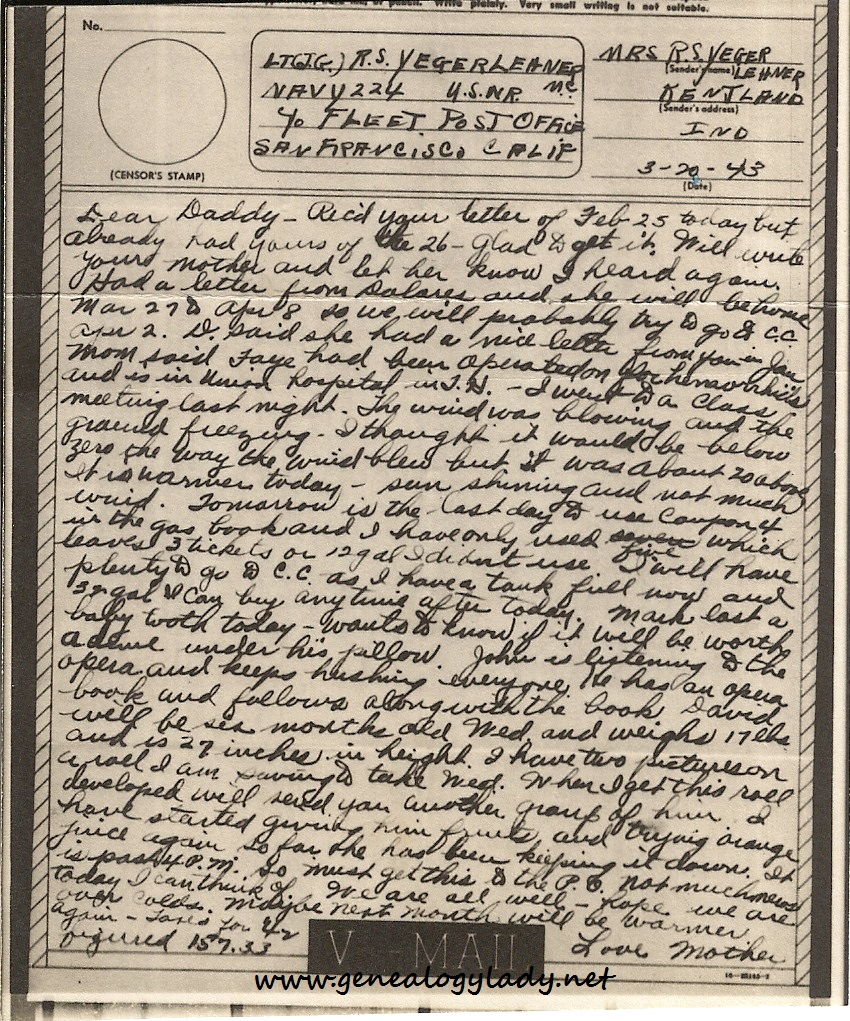 Write plainly. Very small writing is not suitable.
No.
(CENSOR'S STAMP)
LT(J.G.) R.S. YEGERLEHNER
NAVY 224 U.S.N.R. M.C.
c/o FLEET POST OFFICE
SAN FRANCISCO CALIF
MRS R.S. YEGER
LEHNER
(Sender's name)
KENTLAND
(Sender's address)
IND
3-20-43
(Date)
Dear Daddy - Rec'd your letter of Feb 25 today but
already had yours of the 26 - Glad to get it. Will write
yours mother and let her know I heard again.
Had a letter from Dolores and she will be home
Mar 27 to Apr 8 so we will probably try to go to C.C.
Apr 2. D. said she had a nice letter from you in Jan
Mom said Faye had been operated on for
and is in Union Hospital in T.H. - I went to a class
meeting last night. The wind was blowing and the
ground freezing. I thought it would be below
zero the way the wind blew but it was about 20 above
It is warmer today - sun shining and not much
wind. Tomorrow is the last day to use coupon 4
in the gas book and I have only used seven five which
leaves 3 tickets or 12 gal I didn't use. I will have
plenty to go to C.C. as I have a tank full now and
32 gal I can buy anytime after today. Mark lost a
baby tooth today - wants to know if it will be worth
a dime under his pillow. John is listening to the
opera and keeps hushing everyone. He has an opera
book and follows along with the book. David
will be six months old Wed. and weighs 17 lbs.
and is 27 inches in height. I have two pictures on
a roll I am saving to take Wed. When I get this roll
developed will send you another group of him. I
have started giving him fruits and trying orange
juice again. So far he has been keeping it down. It
is past 4 P.M. So must get this to the P.O. Not much news
today I can think of. We are all well - hope we are
over colds. Maybe next month will be warmer
again - Taxes for 42
figured 157.33
Love Mother
V - MAIL
www.genealogylady.net